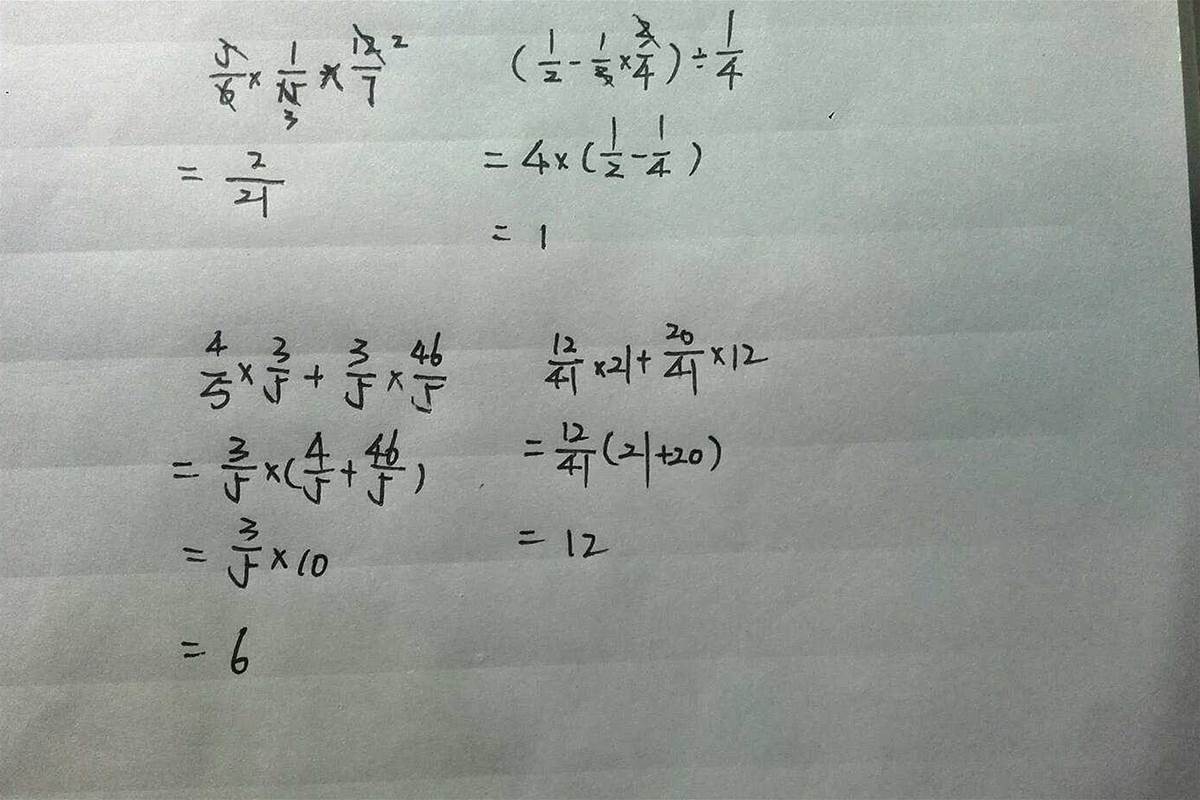 5/6 × 1/15 × 12/7 2
3
= 2/21
(1/2 - 1/3 × 3/4) ÷ 1/4
= 4 × (1/2 - 1/4)
= 1
4/5 × 3/5 + 3/5 × 46/5
= 3/5 × (4/5 + 46/5)
= 3/5 × 10
= 6
12/41 × 21 + 20/41 × 12
= 12/41 (21 + 20)
= 12